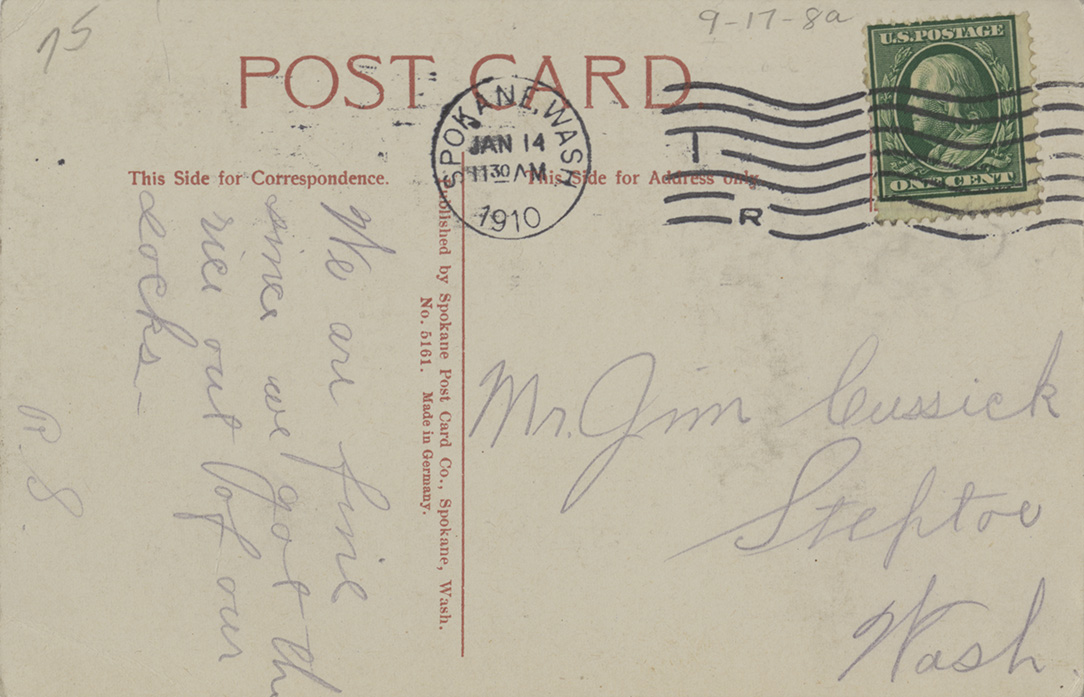 75
9-17-8a
POST CARD
U.S. POSTAGE
ONE CENT
SPOKANE, WASH
JAN 14
11 30 AM
1910
I
R
This Side for Correspondence.
This Side for Address only.
We are fine
since we got the
rice out of our
socks –
R. S
Published by Spokane Post Card Co., Spokane, Wash.
No. 5161. Made in Germany.
Mr. Jim Cussick
Steptoe
Wash.